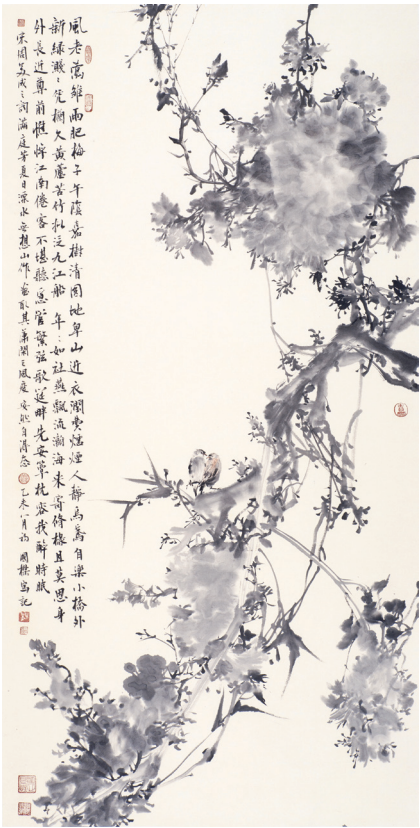 風老鶯雛雨肥梅子午蔭嘉樹清圓地卑山近衣潤費爐煙人靜烏鳶自樂小橋外
新綠濺々凭欄久黃蘆苦竹擬泛九江船年々如社燕飄流瀚海來寄修椽且莫思身
外長近尊前憔悴江南倦客不堪聽急管繁弦歌筵畔先安簟枕容我醉時眠
宋周美成之詞滿庭芳夏日溧水無想山作畫取其蕭閒之風度安然自得 乙未八月初國樑寫記